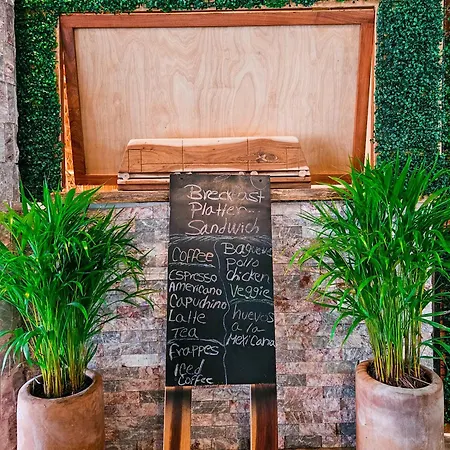 Breckfast
Platter
Sandwich
Coffee
Espresso
Americano
Capuchino
Latte
Tea
Frappes
Iced
Coffee
Baguets
Pollo
chicken
Veggie
hueves
a la
Mexicana